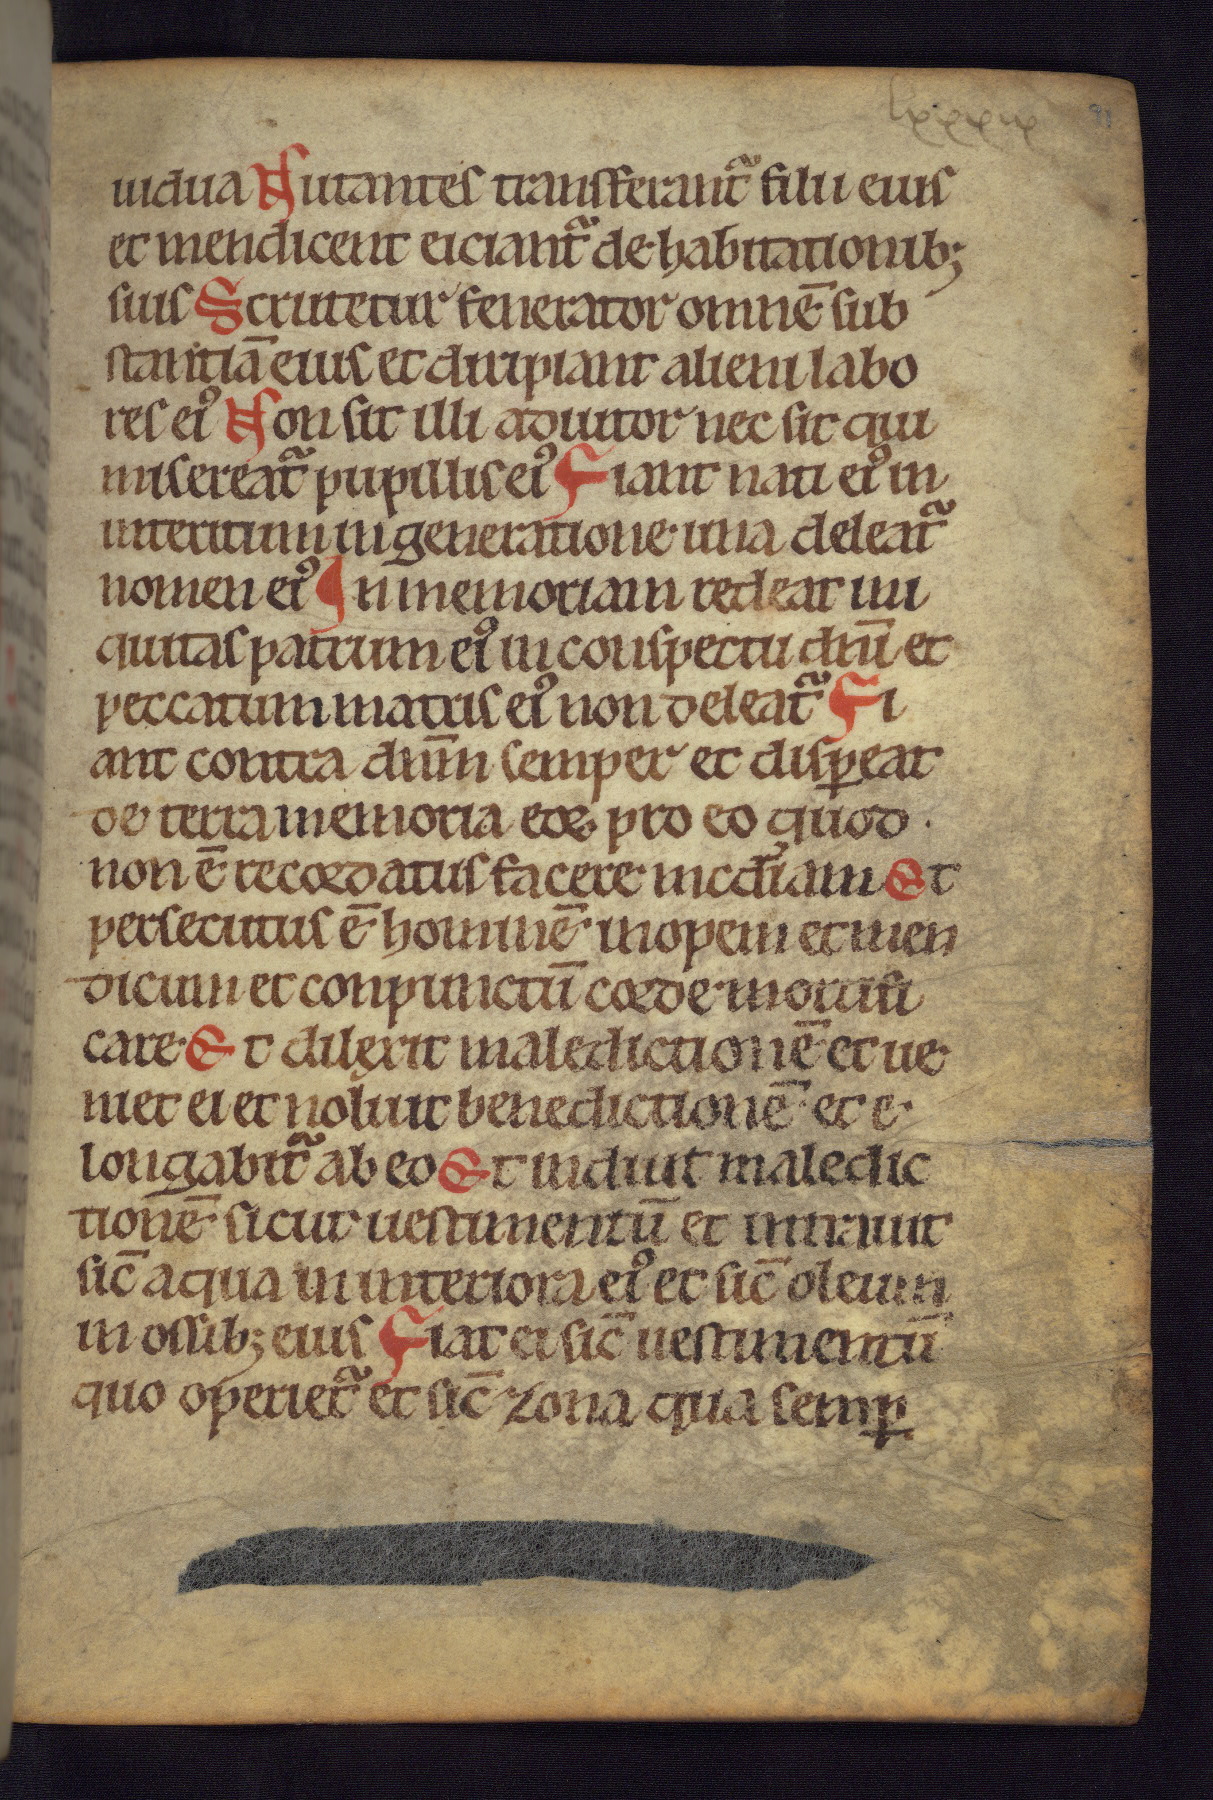 lxxxix 91
uidua Nutantes transferant᷑ filii eius
et mendicent eiciant᷑ de habitationib;
suis Scrutetur fenerator omnē sub
stantiā eius et diripiant alieni labo
res ei᷒ Non sit illi adiutor nec sit qui
misereat᷑ pupillis ei᷒ Fiant nati ei᷒ in
interitum in generatione una deleat᷑
nomen ei᷒ In memoriam redeat ini
quitas patrum ei᷒ in conspectu dn̄i et
peccatum matris ei᷒ non deleat᷑ Fi
ant contra dn̄m semper et disꝑeat
de terra memoria eoꝝ pro eo quod ·
non ē recordatus facere mcd̄iam Et
persecutus ē hominē inopem et men
dicum et conpunctū corde mortifi
care Et dilexit maledictionē et ue
niet ei et noluit benedictionē et e
longabit᷑ ab eo Et induit maledic
tionē sicut uestimentū et intrauit
sic̄ aqua in interiora ei᷒ et sic̄ oleum
in ossib; eius Fiat ei sic̄ uestimentū
quo operiet᷑ et sic̄ zona qua semꝑ